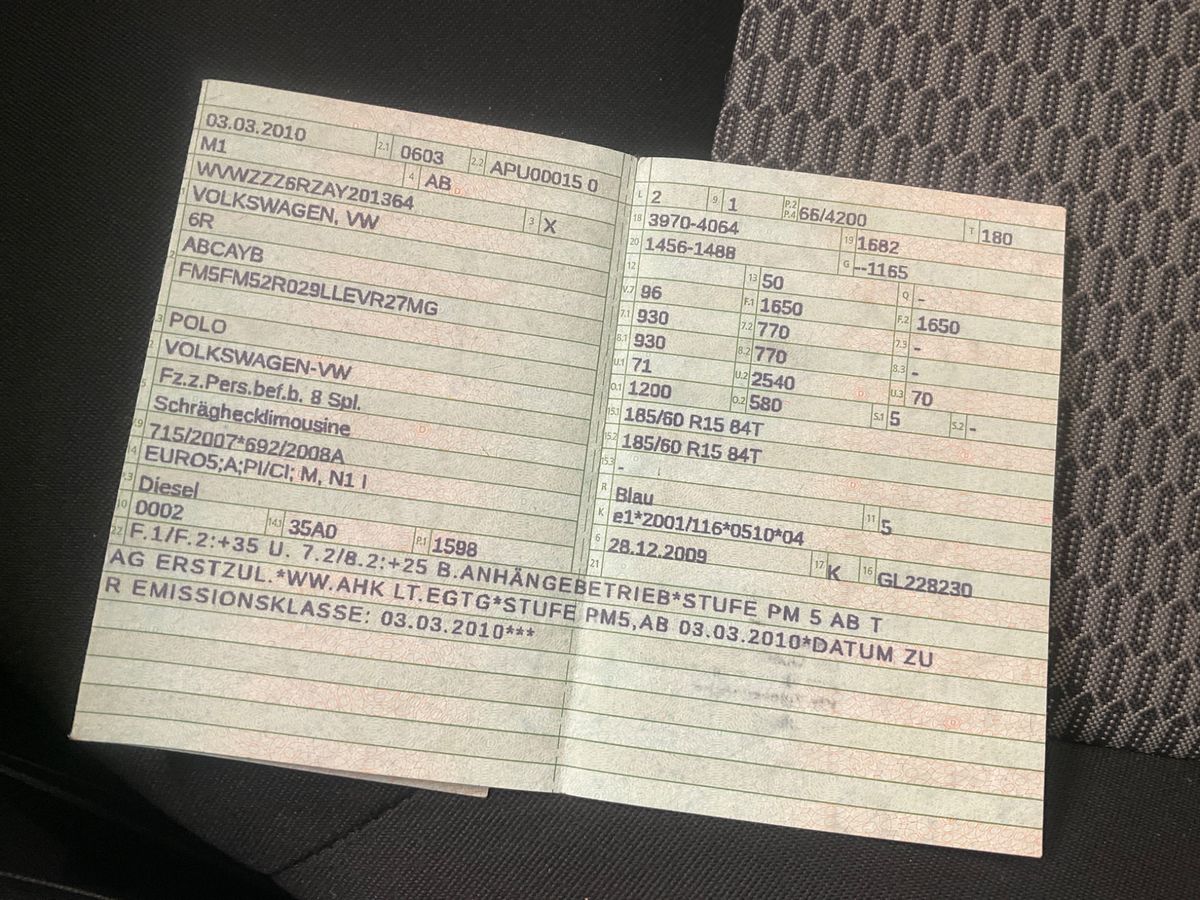 03.03.2010 2.1 0603 2.2 APU00015 0
M1 4 AB
WVWZZZ6RZAY201364 3 X
VOLKSWAGEN, VW
6R
ABCAYB
FM5FM52R029LLEVR27MG
POLO
VOLKSWAGEN-VW
Fz.z.Pers.bef.b. 8 Spl.
Schräghecklimousine
715/2007*692/2008A
EURO5;A;PI/CI; M, N1 I
Diesel
0002 14.1 35A0 P.1 1598
L 2 9 1 P.2 P.4 66/4200 T 180
18 3970-4064 19 1682
20 1456-1488 G --1165
12 13 50 Q -
V.7 96 F.1 1650 F.2 1650
7.1 930 7.2 770 7.3 -
8.1 930 8.2 770 8.3 -
U.1 71 U.2 2540 U.3 70
O.1 1200 O.2 580 S.1 5 S.2 -
15.1 185/60 R15 84T
15.2 185/60 R15 84T
15.3 -
R Blau 11 5
K e1*2001/116*0510*04
6 28.12.2009 17 K 16 GL228230
21
22 F.1/F.2:+35 U. 7.2/8.2:+25 B.ANHÄNGEBETRIEB*STUFE PM 5 AB T
AG ERSTZUL.*WW.AHK LT.EGTG*STUFE PM5,AB 03.03.2010*DATUM ZU
R EMISSIONSKLASSE: 03.03.2010***